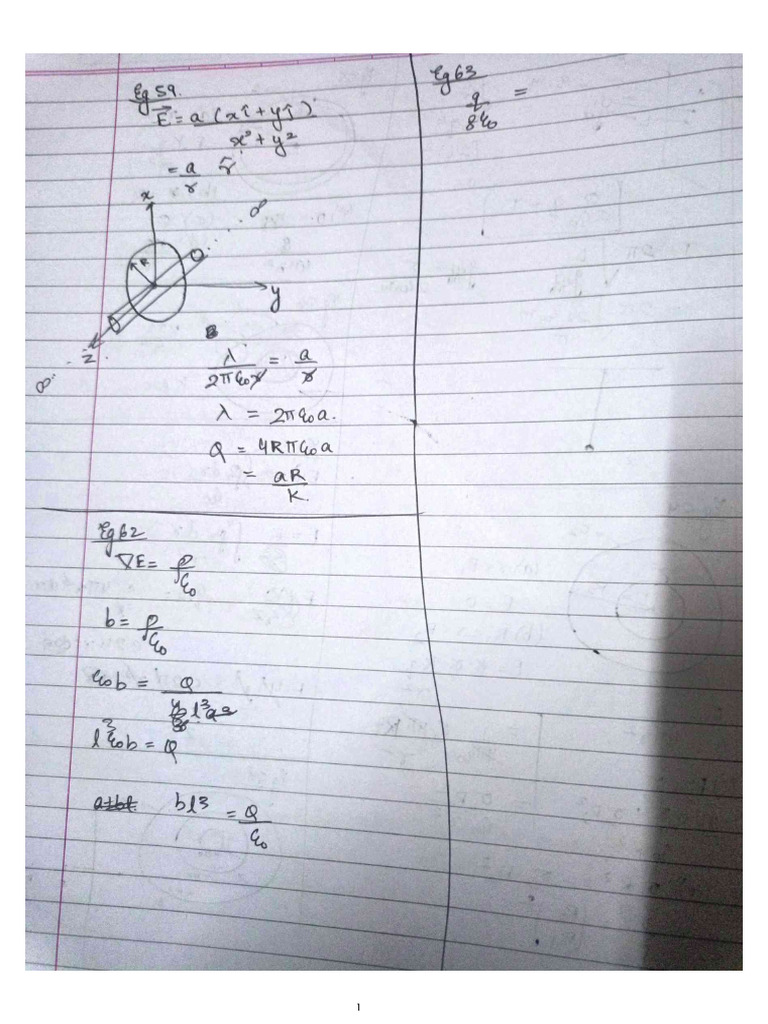 Eg 59.
E⃗ = a (xî + yĵ)
x² + y²
= a r̂
r
x
∞
R
y
z
∞
λ = a
2πε₀r r
λ = 2πε₀a.
Q = 4Rπε₀a
= aR
K.
Eg 62
∇E = ρ
ε₀
b = ρ
ε₀
ε₀b = Q
l³
l³ε₀b = Q
a+bl bl3 = Q
ε₀
Eg 63
q =
8ε₀
1